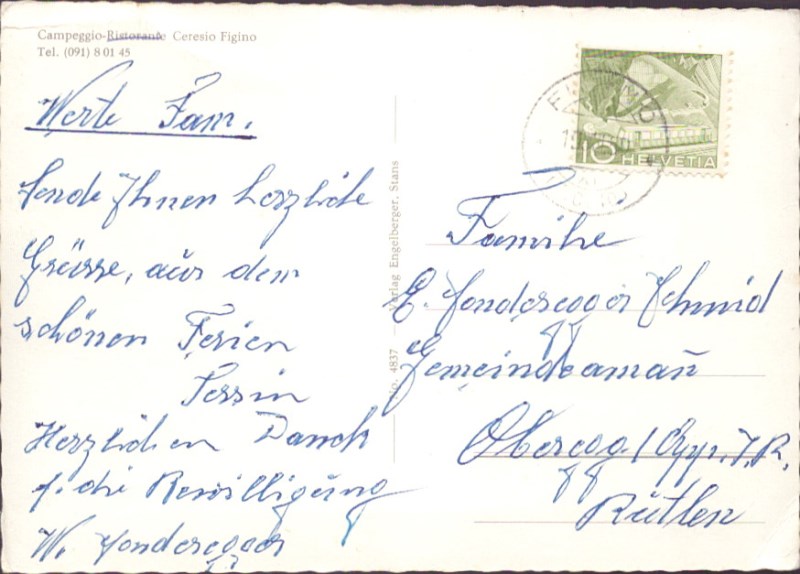 Campeggio-Ristorante Ceresio Figino
Tel. (091) 8 01 45
Werte Fam.
Sende Ihnen herzliche
Grüsse, aus dem
schönen Ferien
Tessin
Herzlichen Danck
f. die Bewilligung
W. Sonderegger
No. 4837 — Verlag Engelberger, Stans
10 HELVETIA
Familie
E. Sonderegger Schmid
Gemeindeamañ
Oberegg / App. I. R.
Rütlen